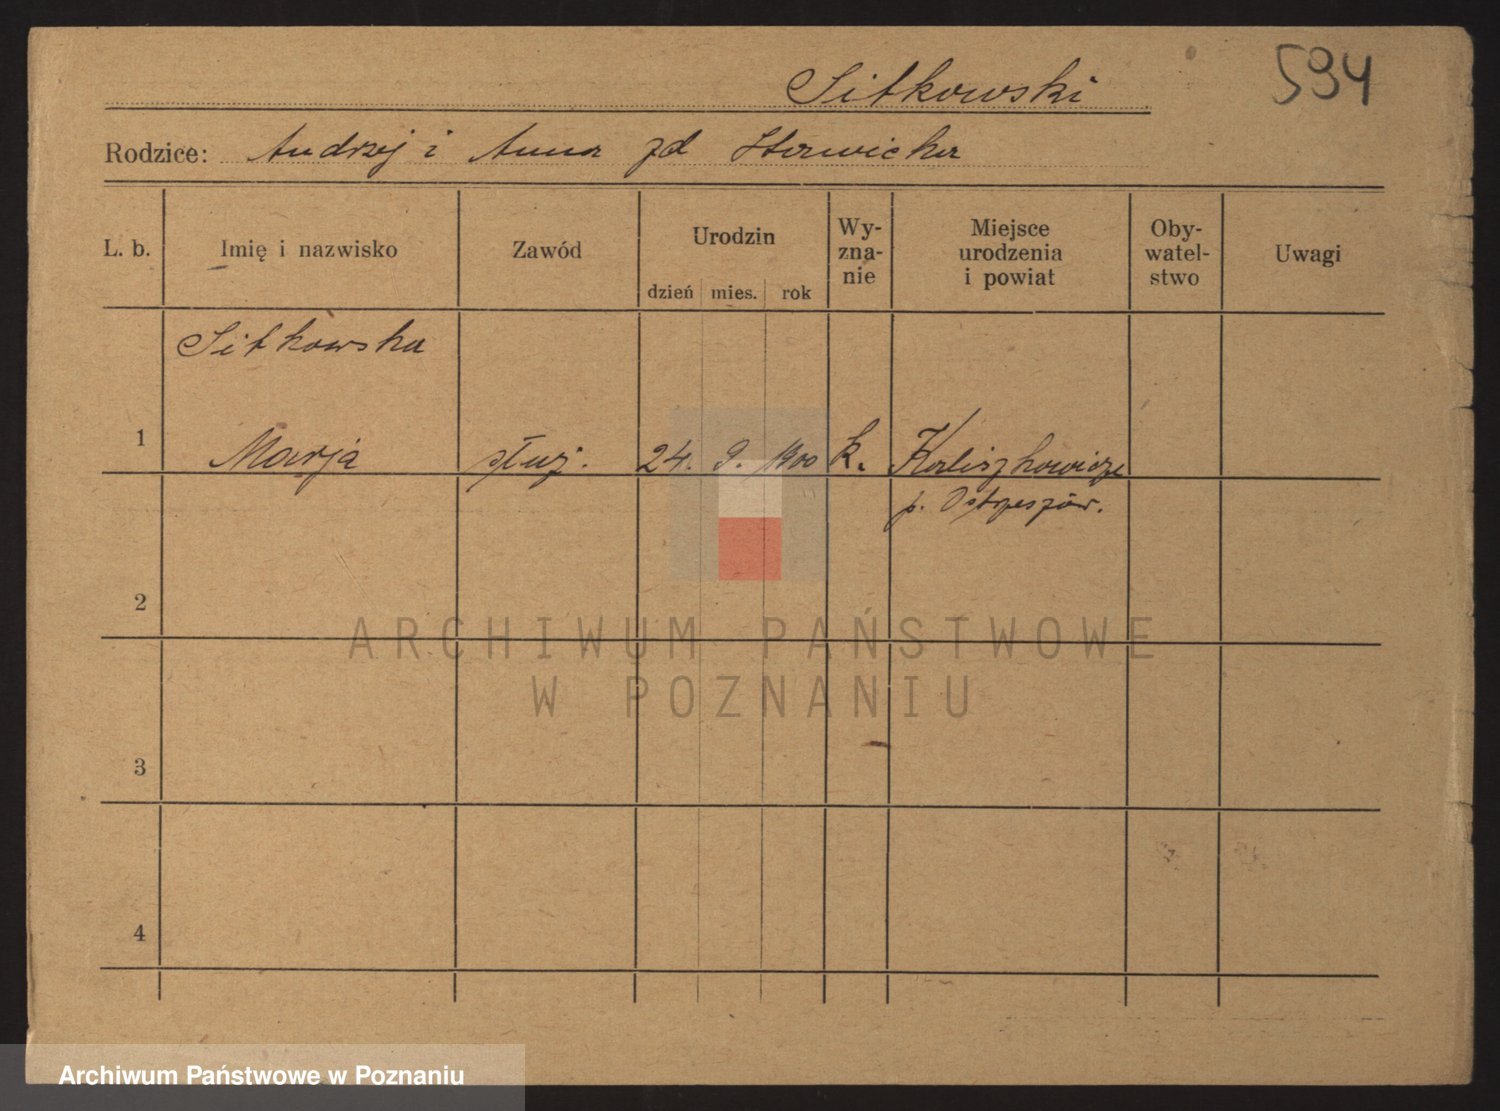 Sitkowski 594
Rodzice: Andrzej i Anna zd
L. b. Imię i nazwisko Zawód Urodzin Wy-zna-nie Miejsce urodzenia i powiat Oby-watel-stwo Uwagi
dzień mies. rok
Sitkowska
1 Marja służ. 24. 9. 1900 k. Kaliszkowice
p. Ostrzeszów.
2
ARCHIWUM PAŃSTWOWE
W POZNANIU
3
4
Archiwum Państwowe w Poznaniu